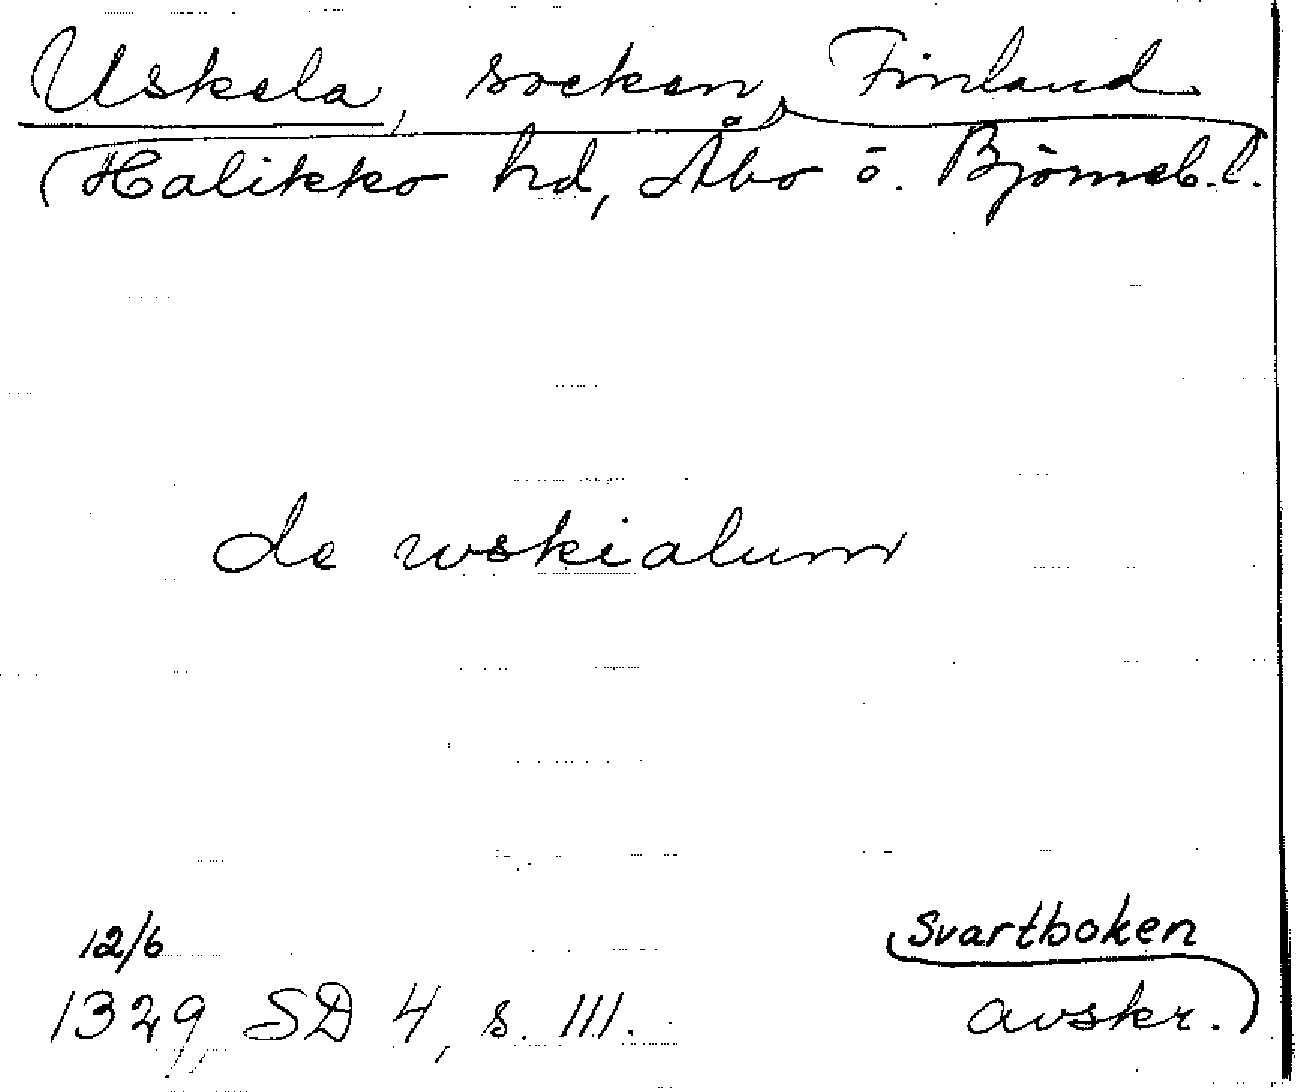 Uskela, socken, Finland
Halikko hd, Åbo ö. Björneb. l.
de wskialum
12/6
Svartboken
1329, SD 4, s. 111.
avskr.